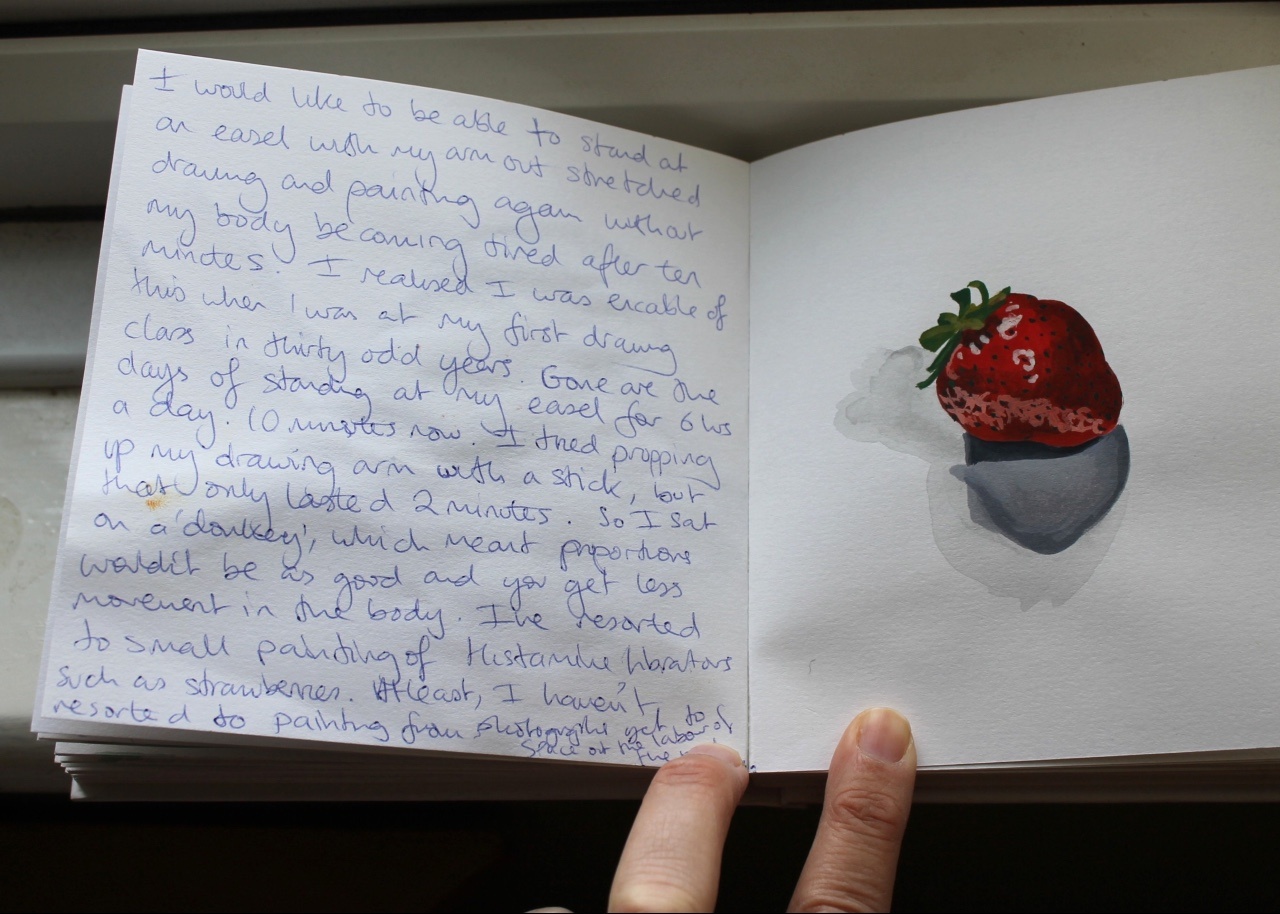 I would like to be able to stand at
an easel with my arm out stretched
drawing and painting again without
my body becoming tired after ten
minutes. I realised I was encable of
this when I was at my first drawing
class in thirty odd years. Gone are the
days of standing at my easel for 6 hrs
a day. 10 minutes now. I tried propping
up my drawing arm with a stick, but
that only lasted 2 minutes. So I sat
on a 'donkey', which meant proportions
wouldn't be as good and you get less
movement in the body. I've resorted
to small painting of Histamine librators
such as strawberries. Atleast, I haven't
resorted to painting from photographs yet, to
space out the labour of
the